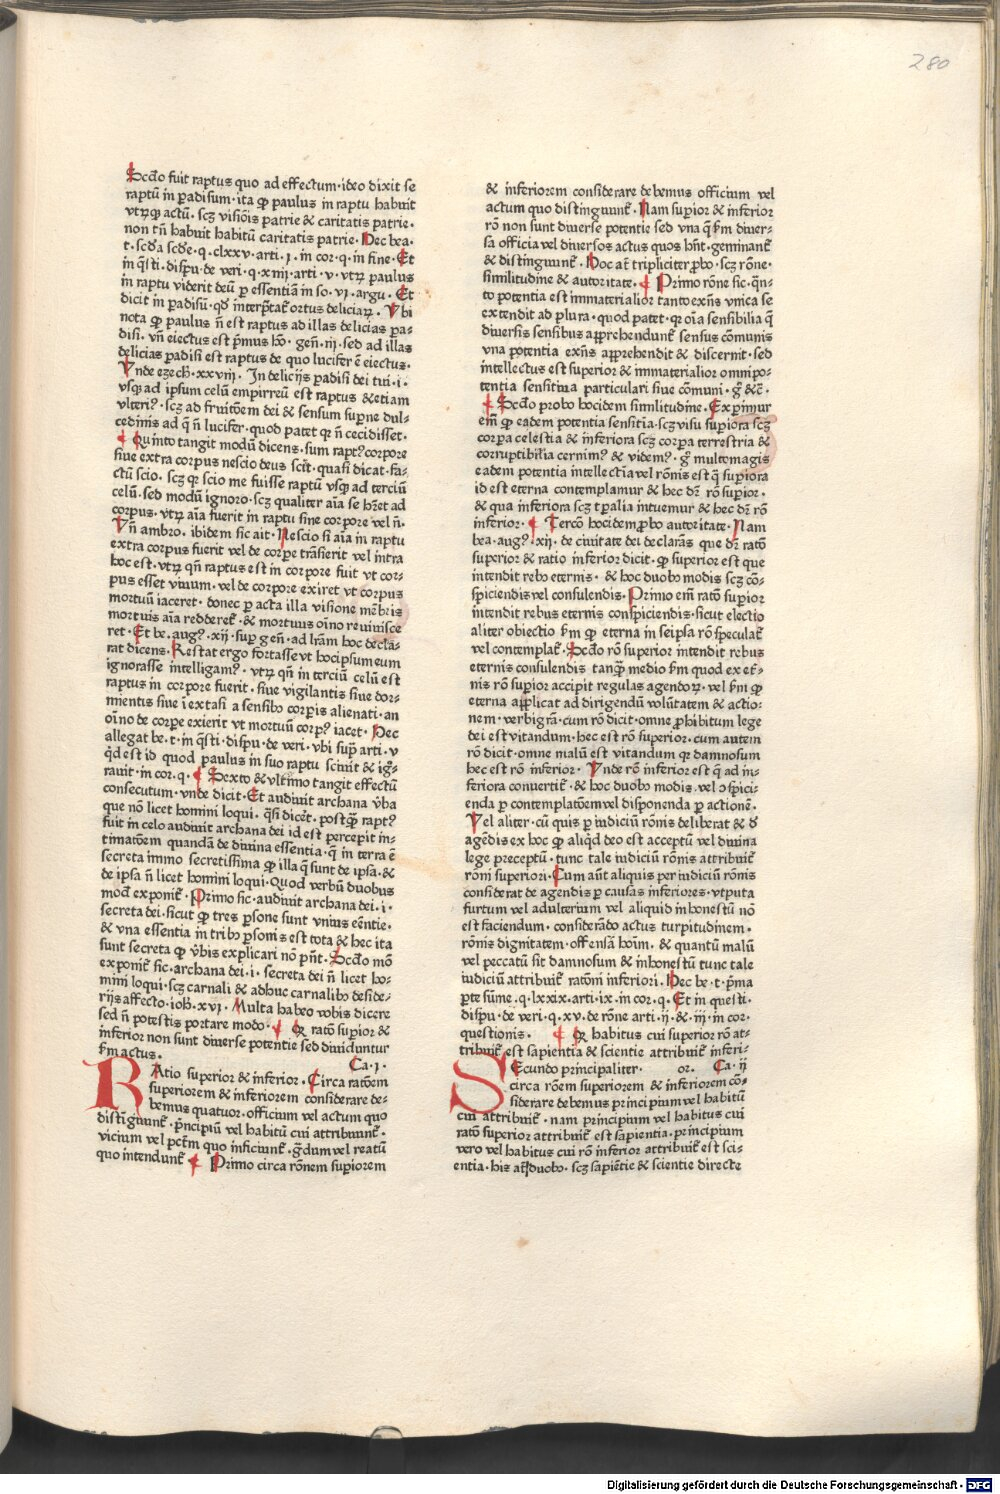 280
Scd̄o fuit raptus quo ad effectum·ideo dixit se
raptū in p̱adisum·ita qꝫ paulus in raptu habuit
vtrūqꝫ actū·scꝫ visiōis patrie & caritatis patrie·
non tn̄ habuit habitū caritatis patrie·Hec bea·
t·scd̄a scd̄e·q·clxxv·arti·i·in cor·q·in fine·Et
in q̄sti·dispu·de veri·q·xiii·arti·v·vtrꝫ paulus
in raptu viderit deū p̱ essentiā in so·vi·argu·Et
dicit in padisū·qd̄ interp̄tat᷑ ortus deliciaꝝ·Vbi
nota qꝫ paulus n̄ est raptus ad illas delicias pa-
disi·vn̄ eiectus est p̄mus hō·gen̄·iij·sed ad illas
delicias padisi est raptus de quo lucifer ē eiectus·
Vnde eꝫech·xxviij·In delicijs padisi dei tui·i·
vsqꝫ ad ipsum celū empirreū est raptus &etiam
vlteri⁹·scꝫ ad fruitōem dei & sensum sup̱ne dul-
cedinis ad q̄ n̄ lucifer·quod patet qꝛ n̄ cecidisset·
¶ Quinto tangit modū dicens·sum rapt⁹ corpore
siue extra corpus nescio deus scit·quasi dicat·fa-
ctū scio·scꝫ qꝛ scio me fuisse raptū vsqꝫ ad terciū
celū·sed modū ignoro·scꝫ qualiter aīa se hr̄et ad
corpus·vtrꝫ aīa fuerit in raptu sine corpore vel n̄·
Vn̄ ambro·ibidem sic ait·Nescio si aīa in raptu
extra corpus fuerit vel de corpe trāsierit vel intra
hoc est·vtrꝫ qn̄ raptus est in corpore fuit vt cor-
pus esset viuum·vel de corpore exiret vt corpus
mortuū iaceret·donec p̱acta illa visione mēbris
mortuis aīa redderet᷑·& mortuus oīno reuiuisce
ret·Et be·aug⁹·xij·sup̱ gen̄·ad lr̄am hoc decla-
rat dicens·Restat ergo fortasse vt hocipsum eum
ignorasse intelligam⁹·vtrꝫ qn̄ in terciū celū est
raptus in corpore fuerit·siue vigilantis siue dor-
mientis siue ī extasi a sensibꝫ corpis alienati·an
oīno de corpe exierit vt mortuū corp⁹ iacet·Hec
allegat be·t·in q̄sti·dispu·de veri·vbi sup̄ arti·v
q̇d est id quod paulus in suo raptu sciuit & ig-
rauit·in cor·q·¶ Sexto & vltimo tangit effectū
consecutum·vnde dicit·Et audiuit archana v̄ba
que nō licet homini loqui·q̄si dicet·postq̄ꝫ rapt⁹
fuit in celo audiuit archana dei id est percepit in-
timatōem quandā de diuina essentia·q̄ in terra ē
secreta immo secretissima qꝫ illa q̄ sunt de ipsa·&
de ipsa n̄ licet homini loqui·Quod verbū duobus
mod̄ exponit᷑·Primo sic·audiuit archana dei·i·
secreta dei·sicut qꝫ tres p̱sone sunt vnius eēntie·
& vna essentia in tribꝫ p̱sonis est tota & hec ita
sunt secreta qꝫ v̄bis explicari nō pn̄t·Scd̄o mō
exponit᷑ sic·archana dei·i·secreta dei n̄ licet ho-
mini loqui·scꝫ carnali & adhuc carnalibꝫ deside-
rijs affecto·ioh̄·xvi·Multa habeo vobis dicere
sed n̄ potestis portare modo·¶ Qꝛ ratō supior &
inferior non sunt diuerse potentie sed diuiduntur
ẜm actus·
Ca·i·
RAtio superior & inferior·Circa ratōem
superiorem & inferiorem considerare de-
bemus quatuor·officium vel actum quo
distīguunt᷑·p̄ncipiū vel habitū cui attribuunt᷑·
vicium vel pct̄m quo inficiunt᷑·ḡdum vel reatū
quo intendunt᷑ ¶ Primo circa rōnem supiorem
& inferiorem considerare debemus officium vel
actum quo distinguunt᷑·Nam supior & inferior
rō non sunt diuerse potentie sed vna q̄ ẜm diuer-
sa officia vel diuersos actus quos hn̄t·geminant᷑
& distinguunt᷑·Hoc at̄ tripliciter p̱bo·scꝫ rōne·
similitudine & autoritate·¶ Primo rōne sic·q̄n-
to potentia est immaterialior tanto exn̄s vnica se
extendit ad plura·quod patet·qꝛ oīa sensibilia q̄
diuersis sensibus apprehendunt᷑ sensus cōmunis
vna potentia exn̄s apprehendit & discernit·sed
intellectus est superior & immaterialior omni po-
tentia sensitiua particulari siue cōmuni·g̊ &c̄·
¶ Scd̄o probo hocidem similitudine·Experimur
em̄ qꝫ eadem potentia sensitīa·scꝫ visu superiora scꝫ
corpa celestia & inferiora scꝫ corpa terrestria &
corruptibilia cernim⁹ & videm⁹·g̊ multomagis
eadem potentia intellectīa vel rōnis est q̄ supiora
id est eterna contemplamur & hec dr̄ rō supior·
& qua inferiora scꝫ tp̱alia intuemur & hec dr̄ rō
inferior·¶ Tercō hocidem p̱bo autoritate·Nam
bea·aug⁹·xij·de ciuitate dei declarās que dr̄ ratō
superior & ratio inferior dicit·qꝫ superior est que
intendit rebꝫ eternis·& hoc duobꝫ modis scꝫ cō-
spiciendis vel consulendis·Primo em̄ ratō supior
intendit rebus eternis conspiciendis·sicut electio
aliter obiectio ẜm qꝫ eterna in seipsa rō speculat᷑
vel contemplat᷑·Scd̄o rō superior intendit rebus
eternis consulendis tanq̄ꝫ medio ẜm quod ex et̄-
nis rō supior accipit regulas agendoꝝ·vel ẜm qꝫ
eterna applicat ad dirigendū volūtatem & actio-
nem·verbigrā·cum rō dicit·omne prohibitum lege
dei est vitandum·hec est rō superior·cum autem
rō dicit·omne malū est vitandum qꝛ damnosum
hec est rō inferior·Vnde rō inferior est q̄ ad in-
feriora conuertit᷑·& hoc duobꝫ modis·vel ↄspici-
enda p̱ contemplatōem vel disponenda p̱ actionē·
Vel aliter·cū quis p̱ iudiciū rōnis deliberat & d̄
agēdis ex hoc qꝫ aliq̇d deo est acceptū vel diuina
lege preceptū·tunc tale iudiciū rōnis attribuit᷑
rōni superiori·Cum aūt aliquis per iudiciū rōnis
considerat de agendis p̱ causas inferiores·vtputa
furtum vel adulterium vel aliquid inhonestū nō
est faciendum·considerādo actus turpitudinem·
rōnis dignitatem·offensā hoīm·& quantū malū
vel peccatū sit damnosum & inhonestū tunc tale
iudiciū attribuit᷑ ratōni inferiori·Hec be·t·p̄ma
parte sūme·q·lxxix·arti·ix·in cor·q·Et in questi·
dispu·de veri·q·xv·de rōne arti·ij·&·iij·in cor·
questionis·¶ Qꝛ habitus cui superior rō at-
tribuit᷑ est sapientia & scientie attribuit᷑ inferi-
SEcundo principaliter·or·Ca·ij
circa rōem superiorem & inferiorem cō-
siderare debemus principium vel habitū
cui attribuit᷑·nam principium vel habitus cui
ratō superior attribuit᷑ est sapientia·principium
vero vel habitus cui rō inferior attribuit᷑ est sci-
entia·his at̄ duobꝫ·scꝫ sapiētie & scientie directe
Digitalisierung gefördert durch die Deutsche Forschungsgemeinschaft - DFG